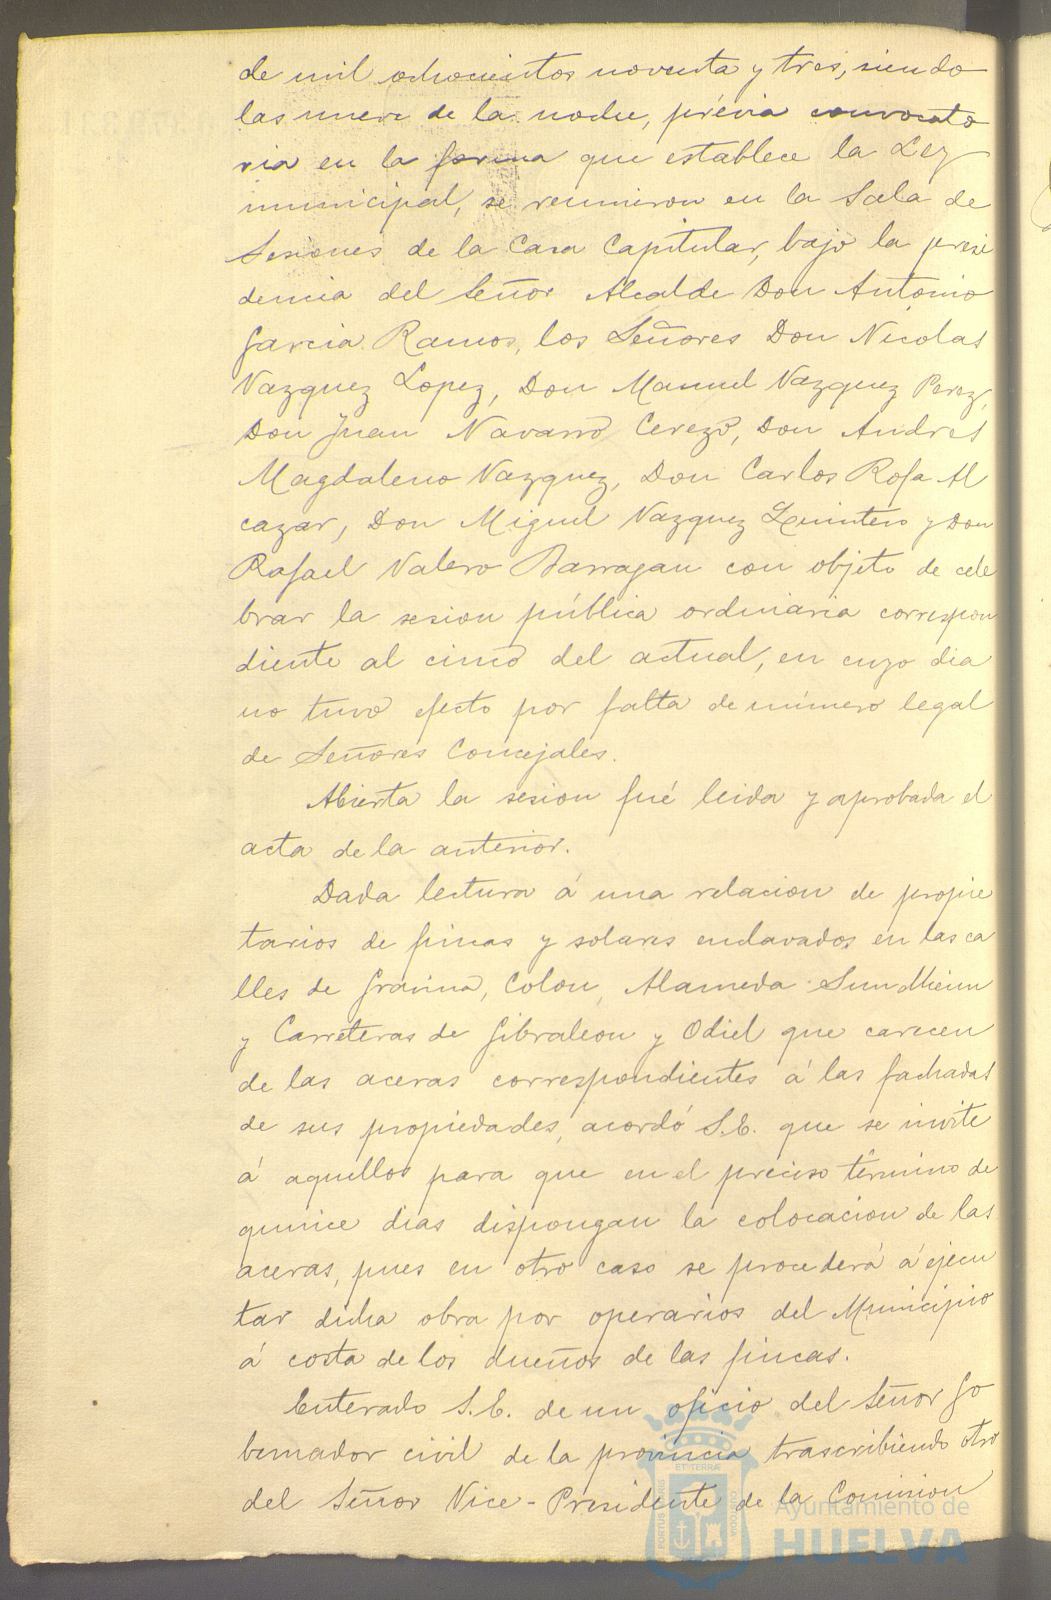 de mil ochocientos noventa y tres, siendo
las nueve de la noche, prévia convocato
ria en la forma que establece la Ley
municipal, se reunieron en la Sala de
Sesiones de la Casa Capitular, bajo la presi
dencia del Señor Alcalde Don Antonio
Garcia Ramos, los Señores Don Nicolas
Vazquez Lopez, Don Manuel Vazquez Perez,
Don Juan Navarro Cerezo, Don Andres
Magdaleno Vazquez, Don Carlos Rofa Al
cazar, Don Miguel Vazquez Quintero y Don
Rafael Valero Barragan con objeto de cele
brar la sesion pública ordinaria correspon
diente al cinco del actual, en cuyo dia
no tuvo efecto por falta de número legal
de Señores Concejales.
Abierta la sesion fué leida y aprobada el
acta de la anterior.
Dada lectura á una relacion de propie
tarios de fincas y solares enclavados en las ca
lles de Gravina, Colon, Alameda Sundheim
y Carreteras de Gibraleon y Odiel que carecen
de las aceras correspondientes á las fachadas
de sus propiedades, acordó S.E. que se invite
á aquellos para que en el preciso término de
quince dias dispongan la colocacion de las
aceras, pues en otro caso se procederá á ejecu
tar dicha obra por operarios del Municipio
á costa de los dueños de las fincas.
Enterado S.E. de un oficio del Señor Go
bernador civil de la provincia trascribiendo otro
del Señor Vice-Presidente de la Comision
Ayuntamiento de
HUELVA